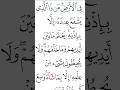 فِي الْأَرْضِ مَن ذَا الَّذِي
يَشْفَعُ عِندَهُ إِلَّا
بِإِذْنِهِ يَعْلَمُ مَا بَيْنَ
أَيْدِيهِمْ وَمَا خَلْفَهُمْ وَلَا
يُحِيطُونَ بِشَيْءٍ مِّنْ
عِلْمِهِ إِلَّا بِمَا شَاءَ وَسِعَ